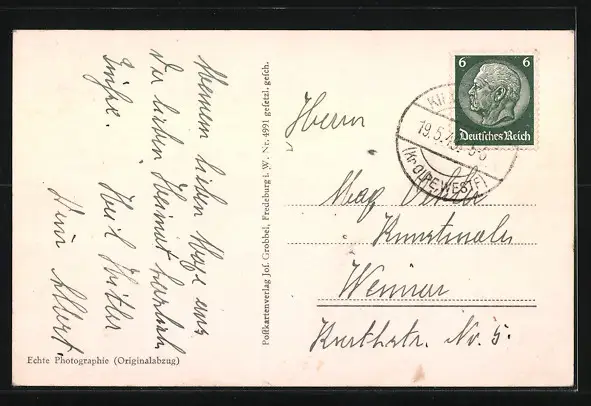 Meinem lieben Maxe aus
der lieben Heimat herzlich
Grüße.
Heil Hitler
Dein Albert.
Echte Photographie (Originalabzug)
Postkartenverlag Jos. Grobbel, Fredeburg i. W. Nr. 4991 gesetzl. gesch.
6 6
Deutsches Reich
19.5.
(Kr. OLPE, WESTF)
Herrn
Max
Kunstmaler
Weimar
Kurthstr. No. 5.